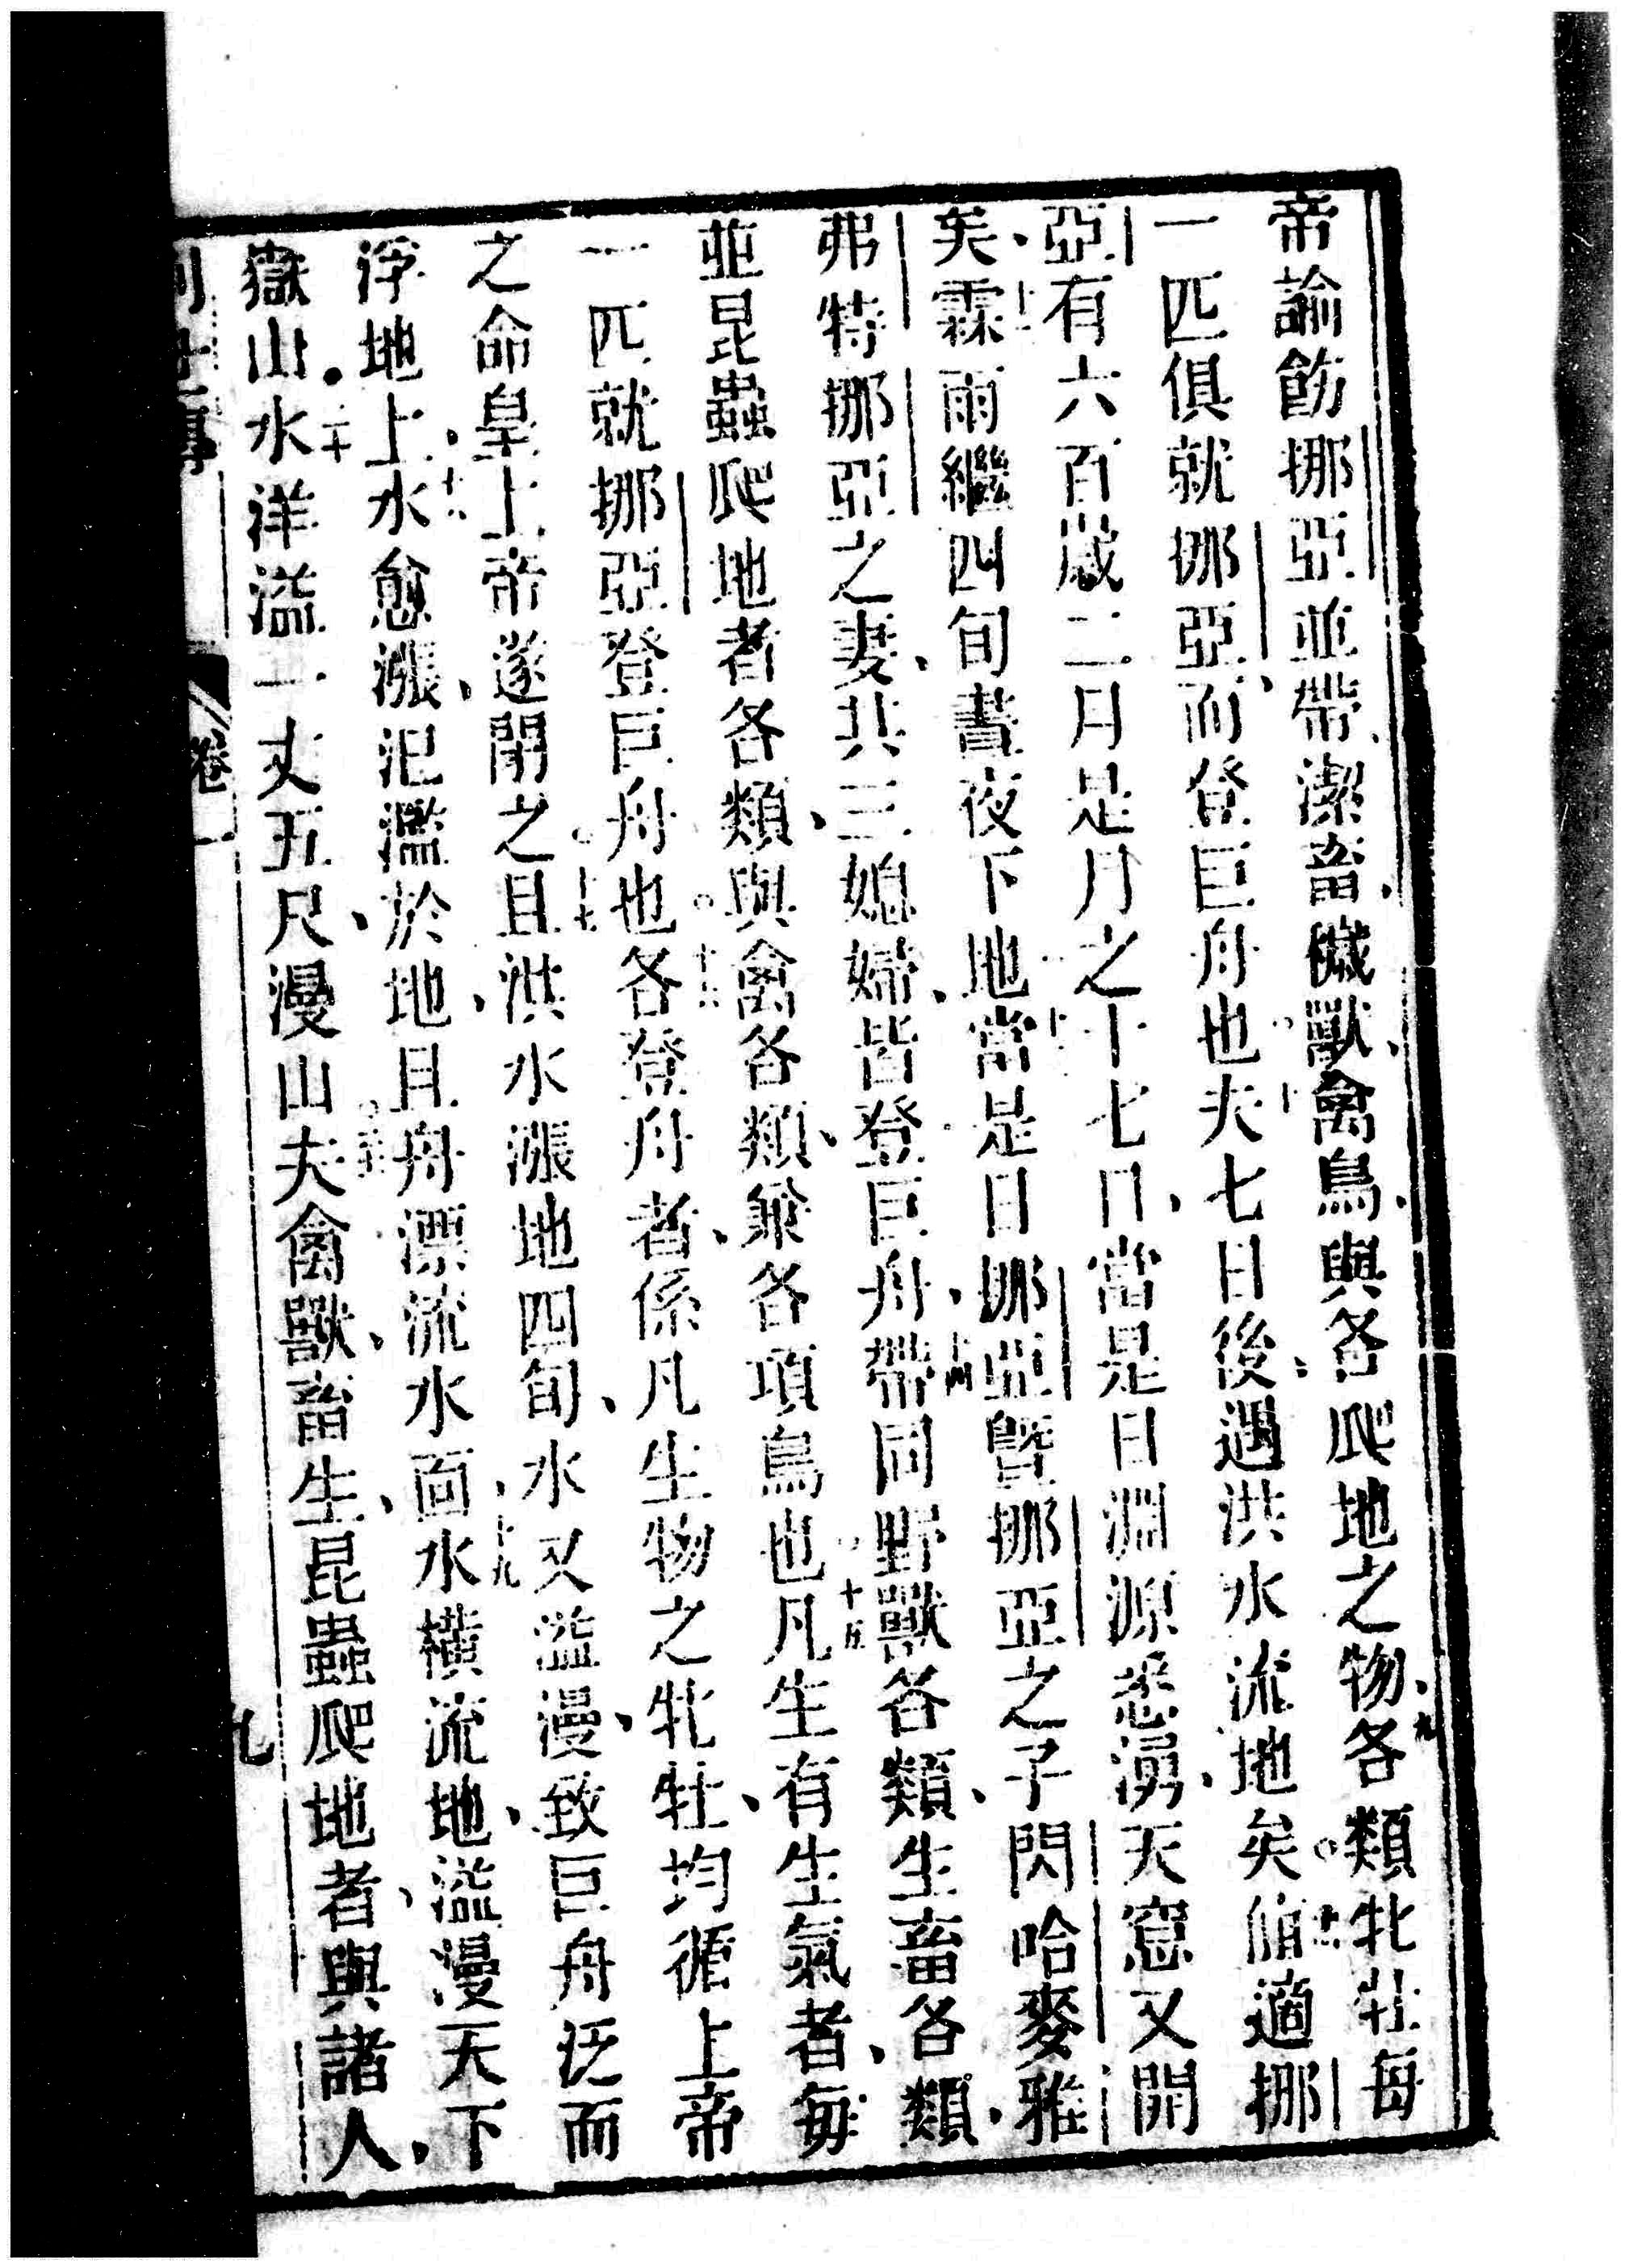 帝諭飭挪亞並帶潔畜、穢獸、禽鳥、與各爬地之物、九各類牝牡每
一匹俱就挪亞、而登巨舟也。十夫七日後、遇洪水流地矣。十一值適挪
亞有六百歲二月是月之十七日、當是日淵源悉湧、天窓又開
矣、十二霖雨繼四旬晝夜下地。十三當是日挪亞曁挪亞之子閃哈麥雅
弗特挪亞之妻、共三媳婦、皆登巨舟、十四帶同野獸各類、生畜各類、
並昆蟲爬地者各類、與禽各類、兼各項鳥也。十五凡生有生氣者、每
一匹就挪亞登巨舟也。十六各登舟者、係凡生物之牝牡、均循上帝
之命皇上帝遂閉之。十七且洪水漲地四旬、水又溢漫、致巨舟泛而
浮地上、十八水愈漲、氾濫於地、且舟漂流水面、十九水橫流地、溢漫天下
嶽山。二十水洋溢一丈五尺、漫山。二十一夫禽獸、畜生、昆蟲爬地者、與諸人、
卷一
九